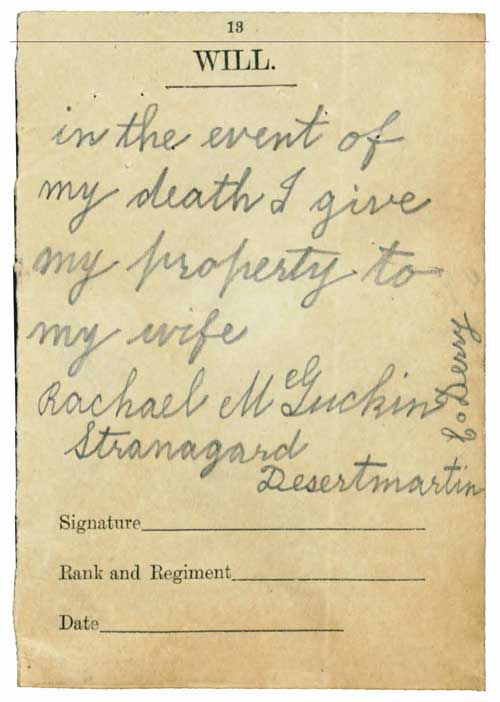 13
WILL.
in the event of
my death I give
my property to
my wife
Rachael McGuckin
Stranagard
Desertmartin
Co Derry
Signature
Rank and Regiment
Date